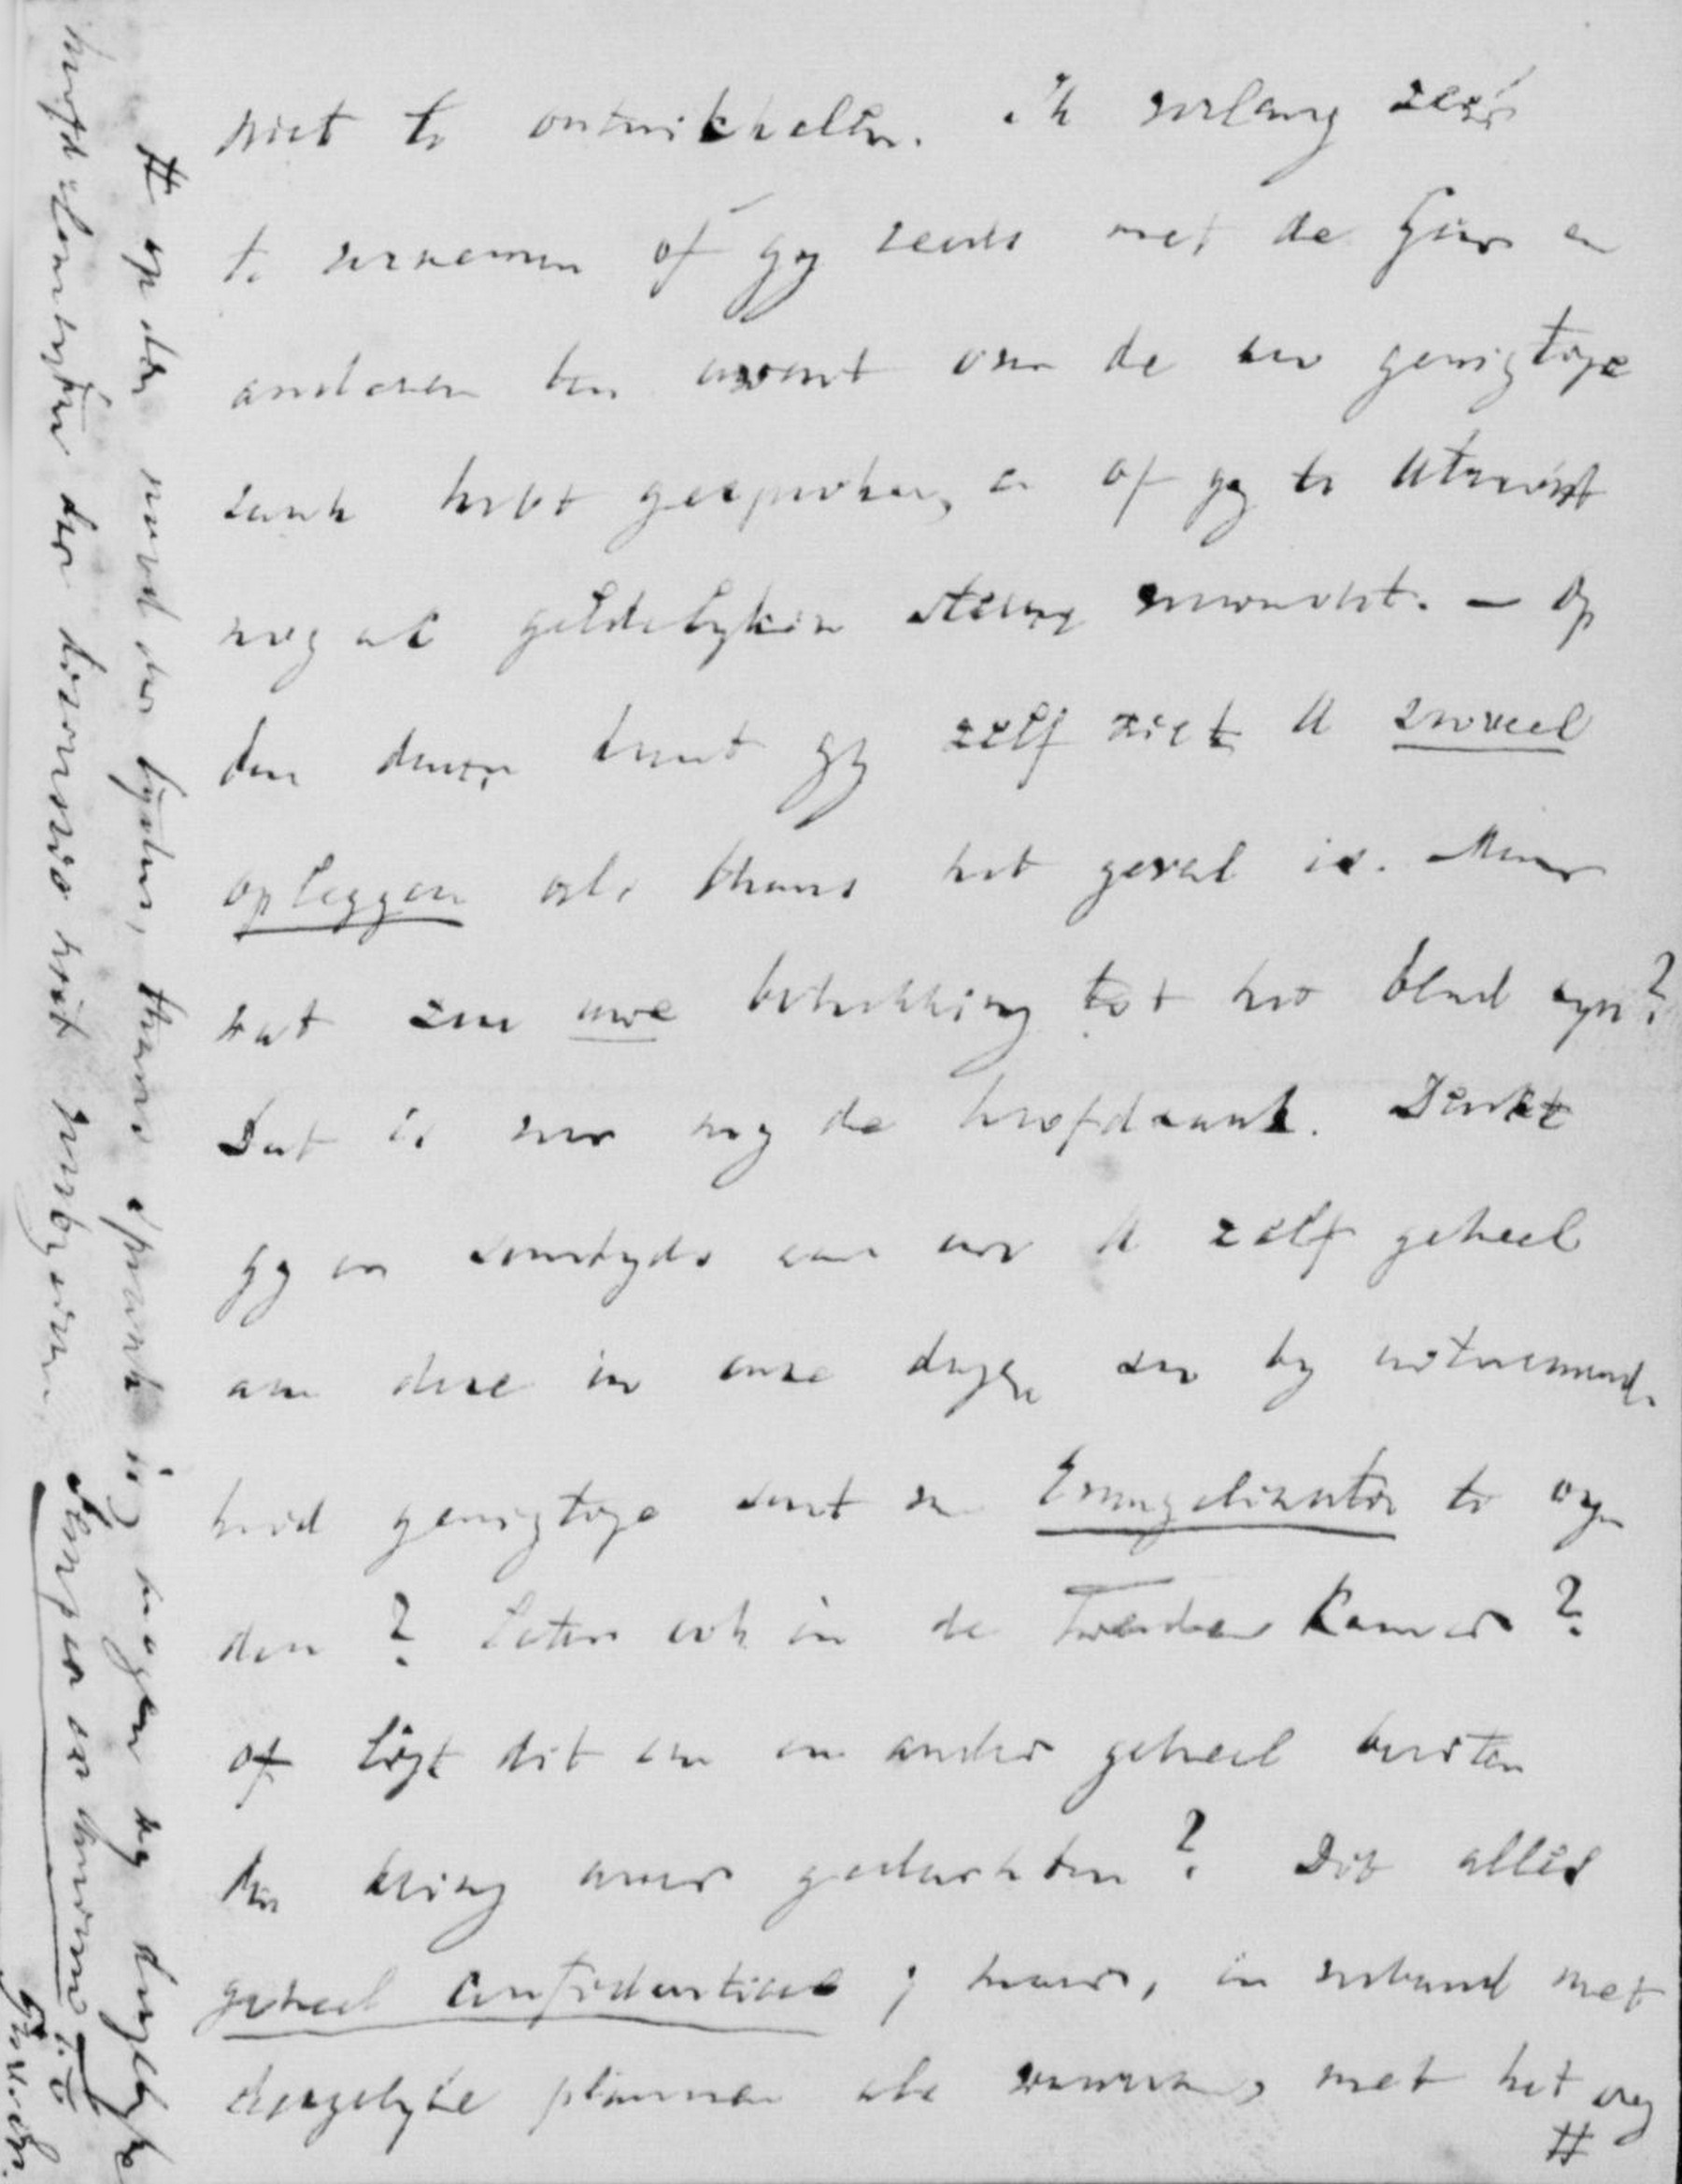 niet te ontwikkelen. Ik verlang zeer
te vernemen of gy reeds met de Geer en
anderen ten avont over de zeer gewigtige
zaak hebt gesproken, en of gy te Utrecht
nog al geldelyken steun verwacht. — Op
den duur kunt gy zelf niet U zooveel
opleggen als thans het geval is. Maar
wat zou uwe betrekking tot het blad zyn?
Dat is voor my de hoofdzaak. Denkt
gy er somtyds aan om U zelf geheel
aan deze in onze dagen zoo by uitnemend-
heid gewigtige soort van Evangelisatie te wy-
den? Later ook in de Tweede Kamer?
of ligt dit een en ander geheel buiten
den kring uwer gedachten? Dit alles
geheel confidentieel; maar, in verband met
dergelyke plannen als waarvan, met het oog
#
# op den nood der tyden, thans spraak is, mogen wy dergelyke
hoofdelementen der discussie niet voorbyzien.
Semper et
Groen